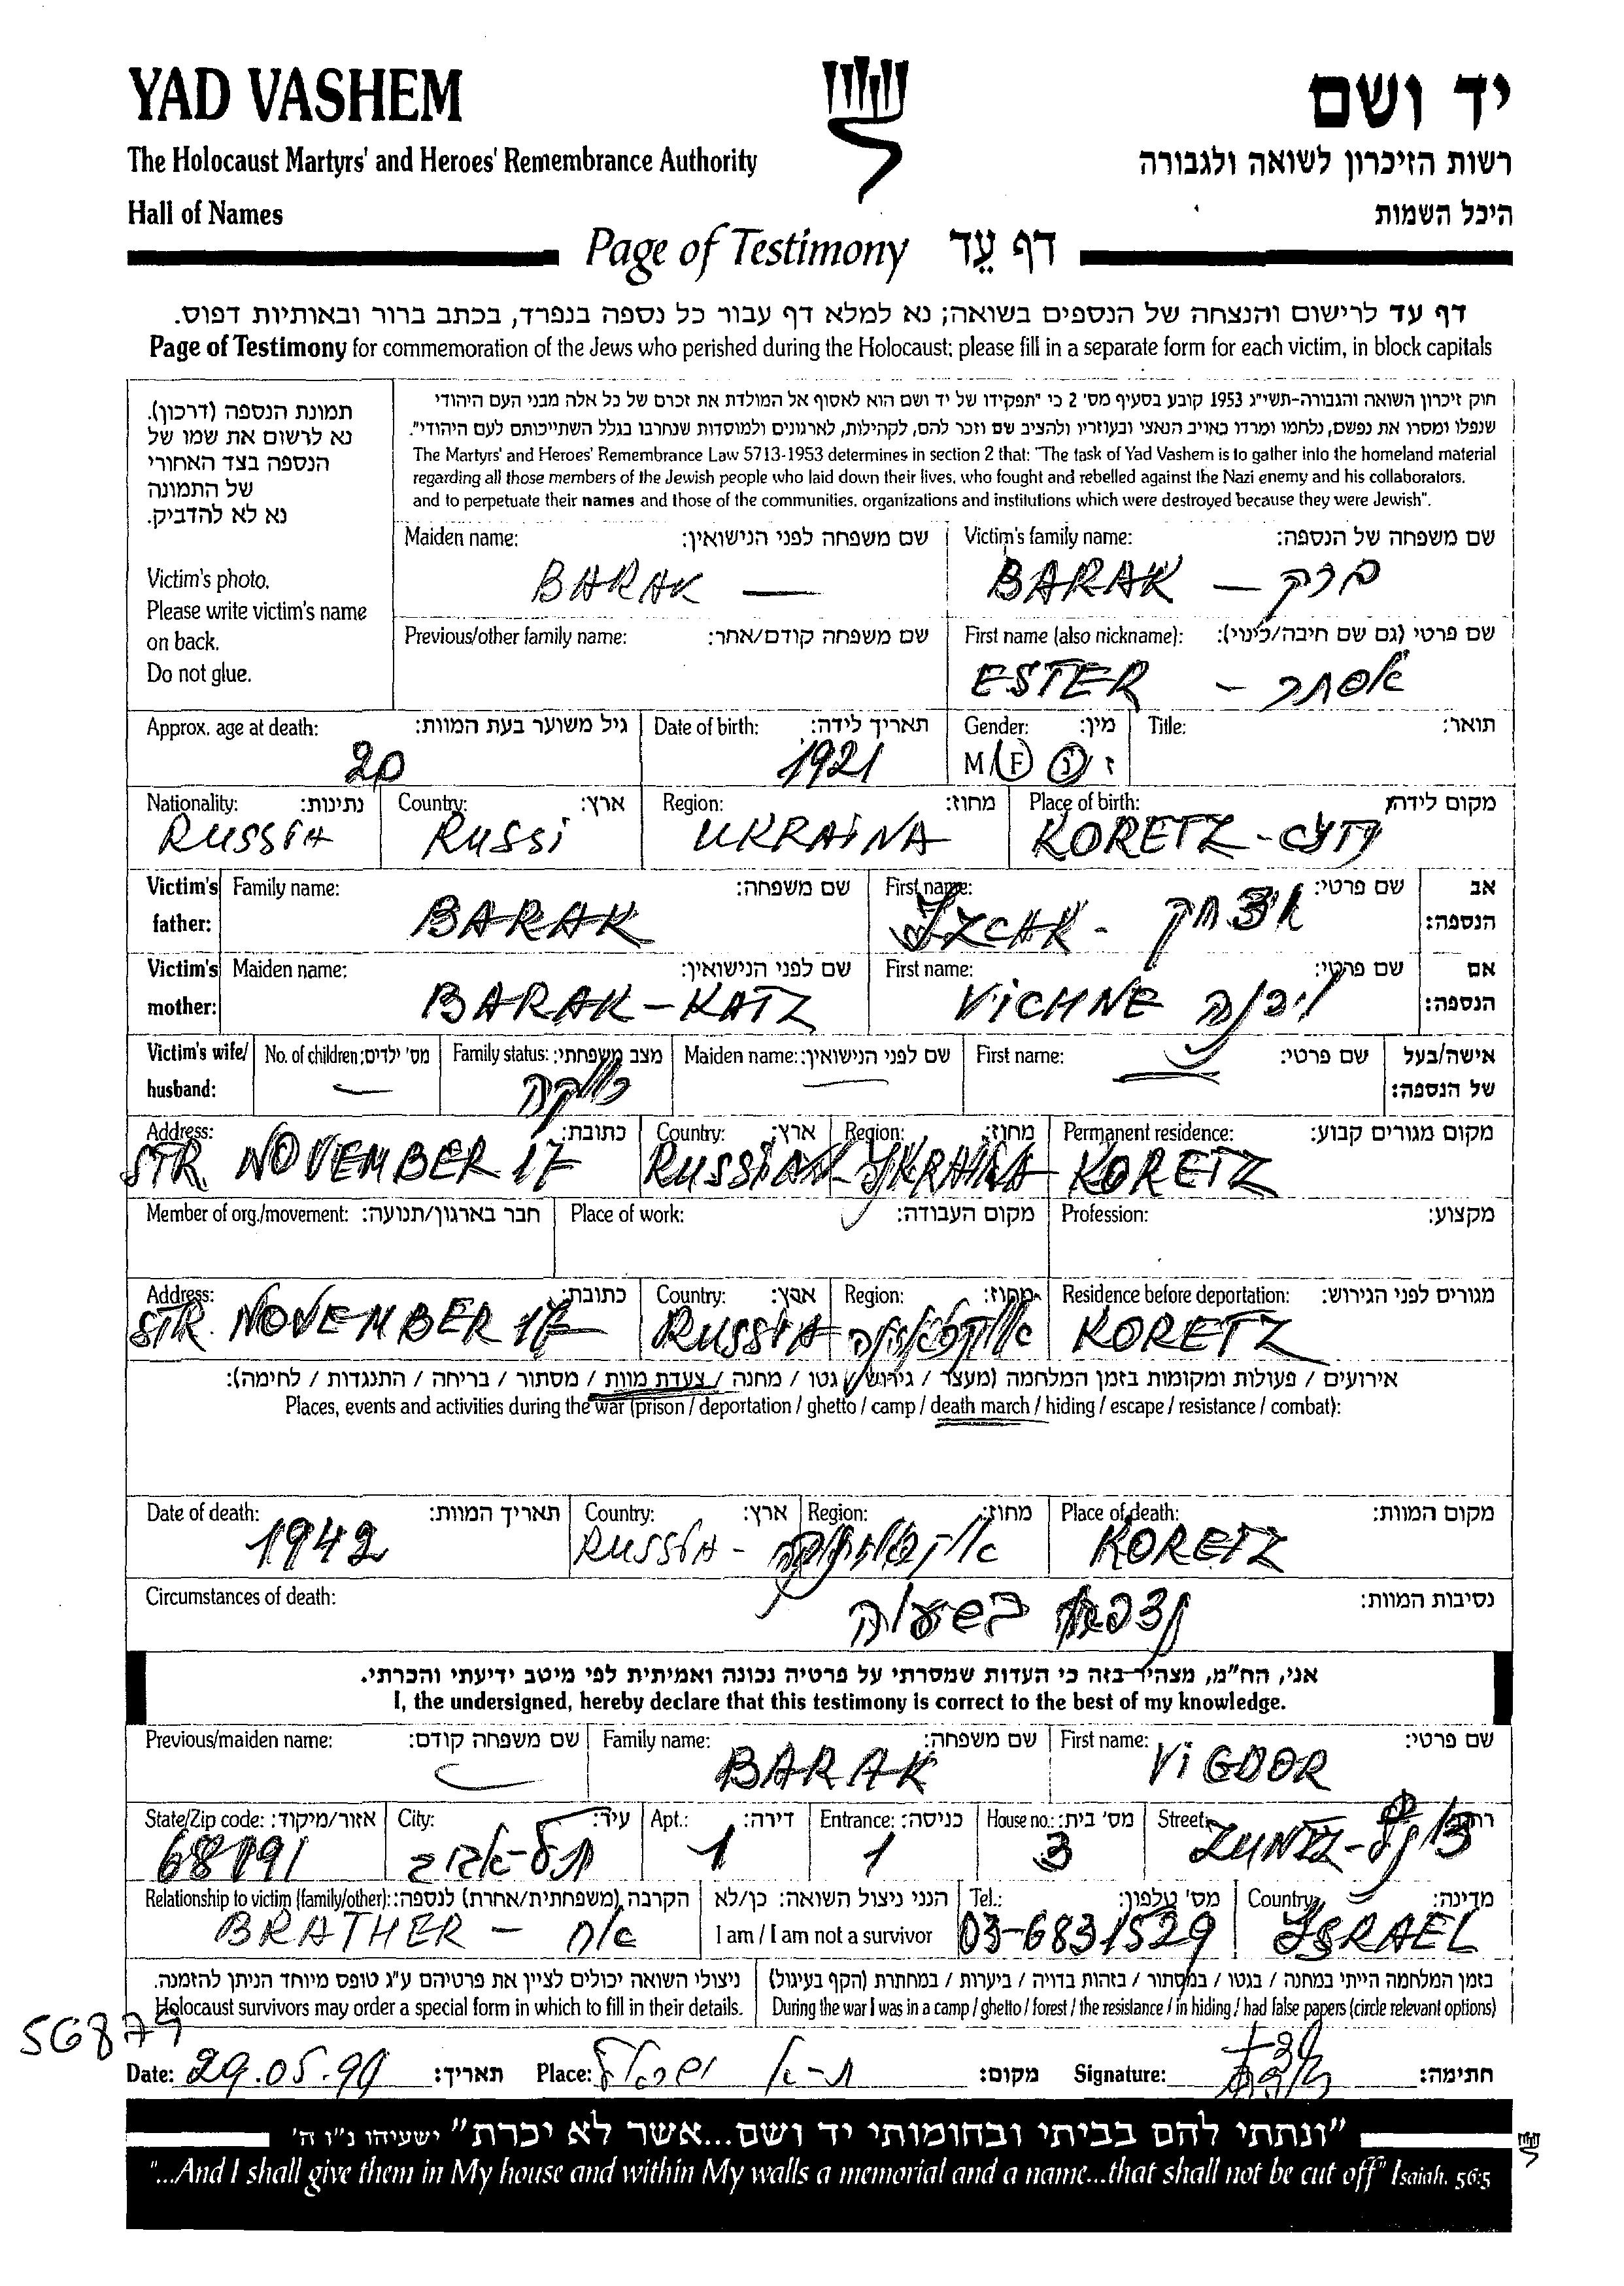 YAD VASHEM
יד ושם
The Holocaust Martyrs' and Heroes' Remembrance Authority
רשות הזיכרון לשואה ולגבורה
Hall of Names
היכל השמות
Page of Testimony דף עֵד
דף עד לרישום והנצחה של הנספים בשואה; נא למלא דף עבור כל נספה בנפרד, בכתב ברור ובאותיות דפוס.
Page of Testimony for commemoration of the Jews who perished during the Holocaust; please fill in a separate form for each victim, in block capitals
תמונת הנספה (דרכון).
נא לרשום את שמו של
הנספה בצד האחורי
של התמונה
נא לא להדביק.
Victim's photo.
Please write victim's name
on back.
Do not glue.
חוק זיכרון השואה והגבורה-תשי"ג 1953 קובע בסעיף מס' 2 כי "תפקידו של יד ושם הוא לאסוף אל המולדת את זכרם של כל אלה מבני העם היהודי
שנפלו ומסרו את נפשם, נלחמו ומרדו באויב הנאצי ובעוזריו ולהציב שם וזכר להם, לקהילות, לארגונים ולמוסדות שנחרבו בגלל השתייכותם לעם היהודי".
The Martyrs' and Heroes' Remembrance Law 5713-1953 determines in section 2 that: "The task of Yad Vashem is to gather into the homeland material
regarding all those members of the Jewish people who laid down their lives, who fought and rebelled against the Nazi enemy and his collaborators,
and to perpetuate their names and those of the communities, organizations and institutions which were destroyed because they were Jewish".
Maiden name: שם משפחה לפני הנישואין:
BARAK —
Victim's family name: שם משפחה של הנספה:
BARAK — ברק
Previous/other family name: שם משפחה קודם/אחר:
First name (also nickname): שם פרטי (גם שם חיבה/כינוי):
ESTER - אסתר
Approx. age at death: גיל משוער בעת המוות:
20
Date of birth: תאריך לידה:
1921
Gender: מין:
M/F נ/ז
Title: תואר:
Nationality: נתינות:
RUSSIA
Country: ארץ:
RUSSI
Region: מחוז:
UKRAINA
Place of birth: מקום לידה:
KORETZ-
Victim's father: Family name: שם משפחה:
BARAK
First name: שם פרטי: אב הנספה:
IZCHK - יצחק
Victim's mother: Maiden name: שם לפני הנישואין:
BARAK-KATZ
First name: שם פרטי: אם הנספה:
VICHNE ויכנה
Victim's wife/husband: No. of children: מס' ילדים:
—
Family status: מצב משפחתי:
רווקה
Maiden name: שם לפני הנישואין:
—
First name: שם פרטי: אישה/בעל של הנספה:
—
Address: כתובת:
STR. NOVEMBER 17
Country: ארץ:
RUSSIA
Region: מחוז:
UKRAINA
Permanent residence: מקום מגורים קבוע:
KORETZ
Member of org./movement: חבר בארגון/תנועה:
Place of work: מקום העבודה:
Profession: מקצוע:
Address: כתובת:
STR. NOVEMBER 17
Country: ארץ:
RUSSIA
Region: מחוז:
Residence before deportation: מגורים לפני הגירוש:
KORETZ
אירועים / פעולות ומקומות בזמן המלחמה (מעצר / גירוש / גטו / מחנה / צעדת מוות / מסתור / בריחה / התנגדות / לחימה):
Places, events and activities during the war (prison / deportation / ghetto / camp / death march / hiding / escape / resistance / combat):
Date of death: תאריך המוות:
1942
Country: ארץ:
RUSSIA -
Region: מחוז:
Place of death: מקום המוות:
KORETZ
Circumstances of death: נסיבות המוות:
אני, הח"מ, מצהיר בזה כי העדות שמסרתי על פרטיה נכונה ואמיתית לפי מיטב ידיעתי והכרתי.
I, the undersigned, hereby declare that this testimony is correct to the best of my knowledge.
Previous/maiden name: שם משפחה קודם:
Family name: שם משפחה:
BARAK
First name: שם פרטי:
VIGDOR
State/Zip code: אזור/מיקוד:
68191
City: עיר:
תל-אביב
Apt.: דירה:
1
Entrance: כניסה:
1
House no.: מס' בית:
3
Street: רח':
ZUNTZ-
Relationship to victim (family/other): הקרבה (משפחתית/אחרת) לנספה:
BRATHER - אח
הנני ניצול השואה: כן/לא
I am / I am not a survivor
Tel.: מס' טלפון:
03-6831529
Country: מדינה:
ISRAEL
ניצולי השואה יכולים לציין את פרטיהם ע"ג טופס מיוחד הניתן להזמנה.
Holocaust survivors may order a special form in which to fill in their details.
בזמן המלחמה הייתי במחנה / בגטו / במסתור / בזהות בדויה / ביערות / במחתרת (הקף בעיגול)
During the war I was in a camp / ghetto / forest / the resistance / in hiding / had false papers (circle relevant options)
56879
Date: 29.05.99 תאריך: Place: ת-א ישראל מקום: Signature: חתימה:
"ונתתי להם בביתי ובחומותי יד ושם...אשר לא יכרת" ישעיהו נ"ו ה'
"...And I shall give them in My house and within My walls a memorial and a name...that shall not be cut off" Isaiah, 56:5